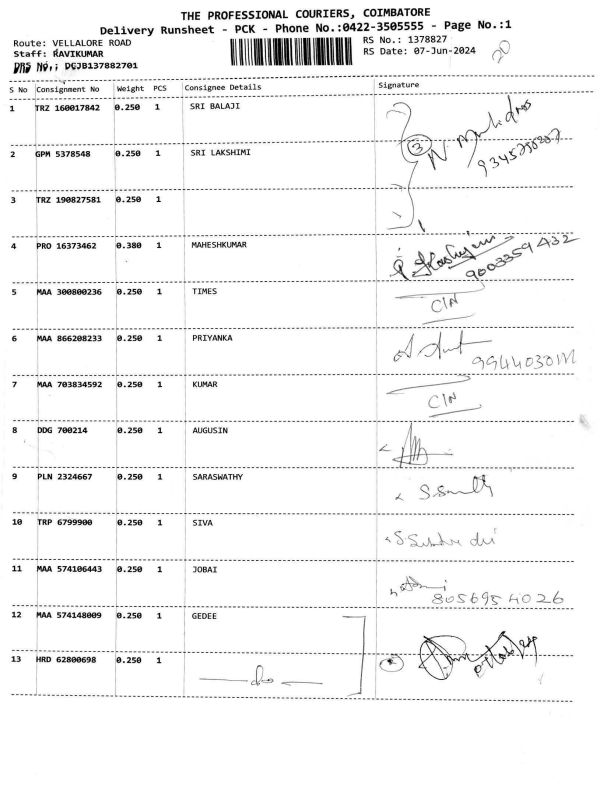 THE PROFESSIONAL COURIERS, COIMBATORE
Delivery Runsheet - PCK - Phone No.:0422-3505555 - Page No.:1
Route: VELLALORE ROAD
RS No.: 1378827
Staff: RAVIKUMAR
RS Date: 07-Jun-2024
20
DRS No.: DCJB137882701
S No Consignment No Weight PCS Consignee Details Signature
1 TRZ 160017842 0.250 1 SRI BALAJI
2 GPM 5378548 0.250 1 SRI LAKSHIMI
3
3 TRZ 190827581 0.250 1
4 PRO 16373462 0.380 1 MAHESHKUMAR
9003359432
5 MAA 300800236 0.250 1 TIMES
C/N
6 MAA 866208233 0.250 1 PRIYANKA
7 MAA 703834592 0.250 1 KUMAR
C/N
8 DDG 700214 0.250 1 AUGUSIN
9 PLN 2324667 0.250 1 SARASWATHY
10 TRP 6799900 0.250 1 SIVA
11 MAA 574106443 0.250 1 JOBAI
8056954026
12 MAA 574148009 0.250 1 GEDEE
13 HRD 62800698 0.250 1
do
2